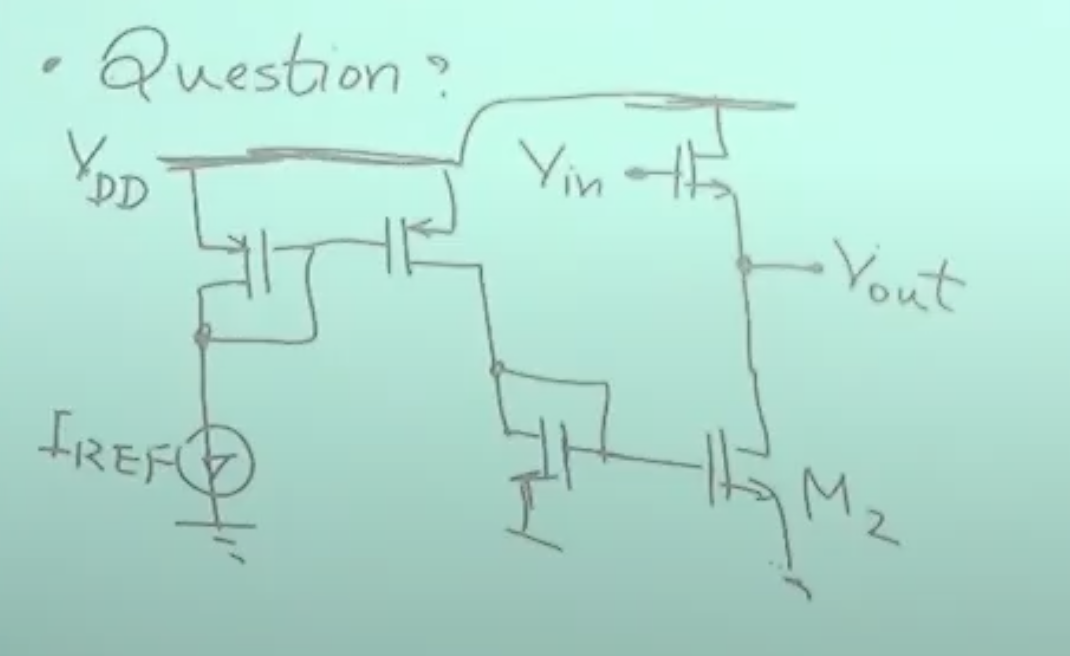 • Question?
VDD
Vin
Vout
IREF
M2